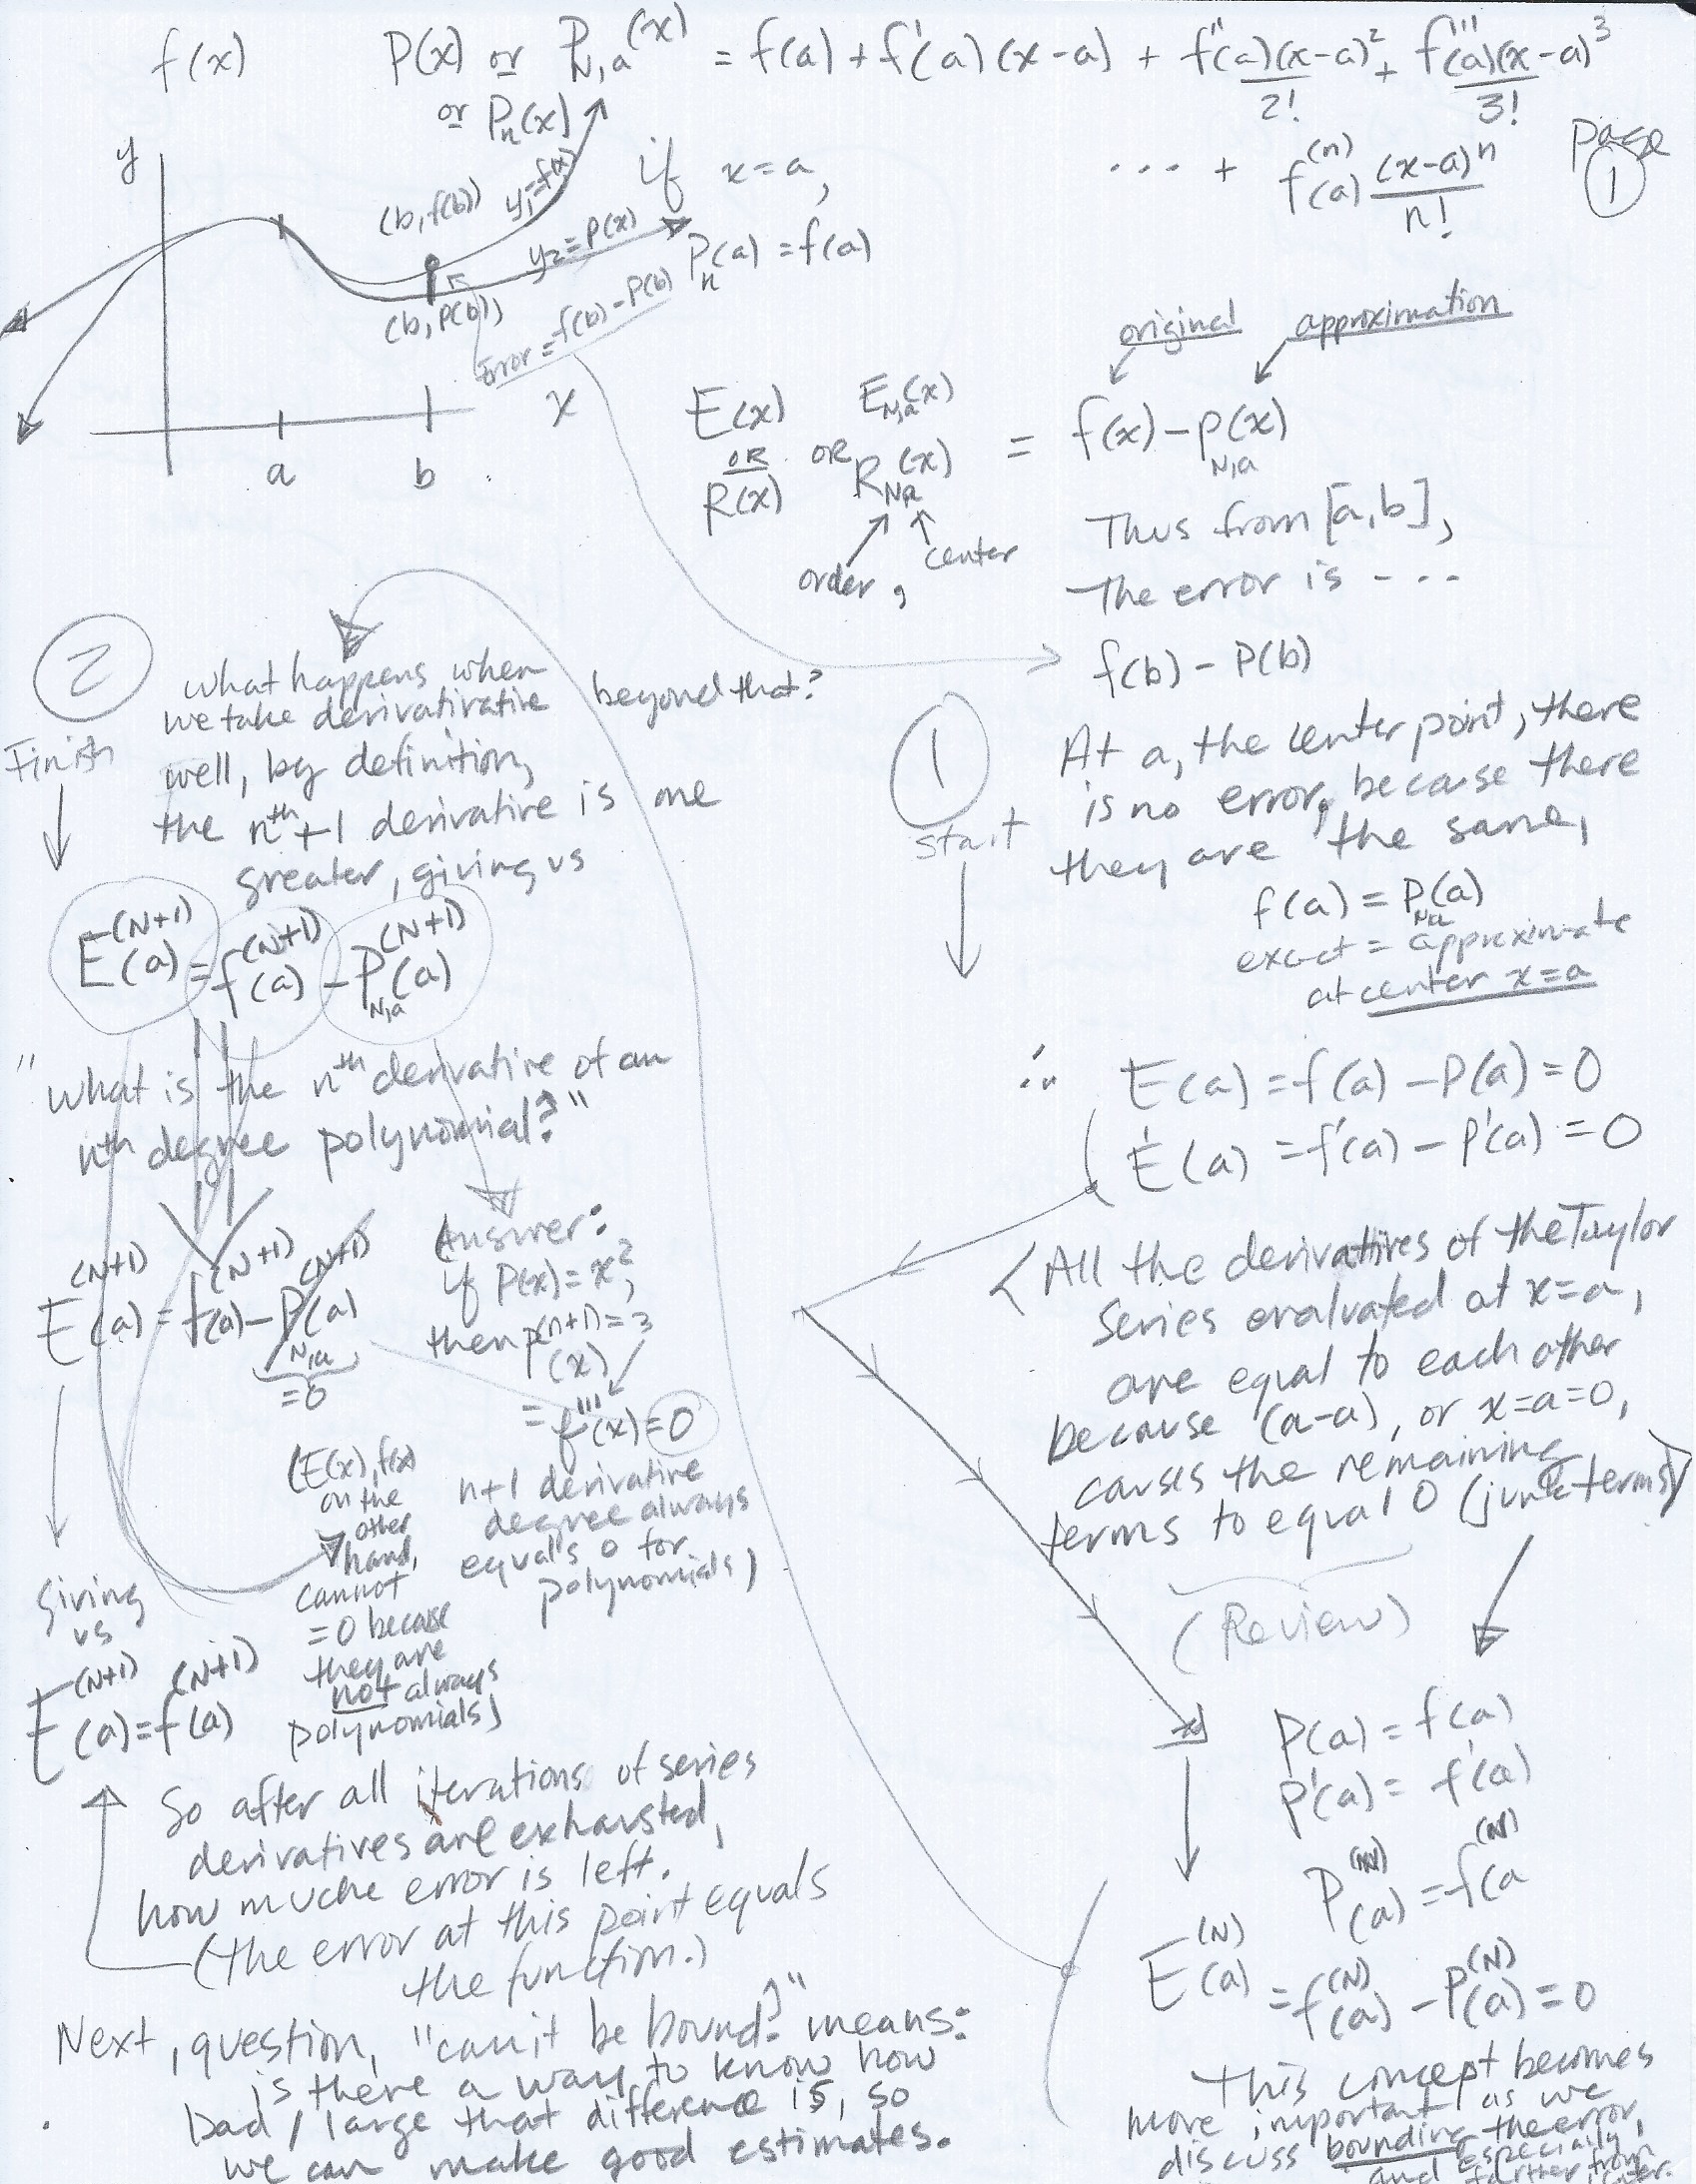 f(x) P(x) or P_{N,a}(x) = f(a) + f'(a)(x-a) + f''(a)(x-a)^2/2! + f'''(a)(x-a)^3/3!
or P_n(x)
... + f^{(n)}(a) (x-a)^n/n!
Page
1
y
(b, f(b))
y_1=f(x)
y_2=P(x)
(b, P(b))
error = f(b) - P(b)
x
a b
if x=a,
P_n(a) = f(a)
original approximation
E(x) or E_{N,a}(x) = f(x) - P_{N,a}(x)
OR
R(x) R_{N,a}(x)
order, center
Thus from [a,b],
The error is - - -
f(b) - P(b)
1
Start
At a, the center point, there
is no error, because there
they are the same,
f(a) = P_{N,a}(a)
exact = approximate
at center x=a
∴ E(a) = f(a) - P(a) = 0
E'(a) = f'(a) - P'(a) = 0
(All the derivatives of the Taylor
series evaluated at x=a,
are equal to each other
because (a-a), or x=a=0,
causes the remaining
terms to equal 0 (junk terms)
(Review)
P(a) = f(a)
P'(a) = f'(a)
P^{(N)}(a) = f^{(N)}(a
E^{(N)}(a) = f^{(N)}(a) - P^{(N)}(a) = 0
This concept becomes
more important as we
discuss bounding the error,
and especially,
farther from
2
Finish
What happens when
we take derivativative beyond that?
well, by definition,
the n^{th}+1 derivative is one
greater, giving us
E^{(N+1)}(a) = f^{(N+1)}(a) - P_{N,a}^{(N+1)}(a)
"What is the n^{th} derivative of an
n^{th} degree polynomial?"
E^{(N+1)}(a) = f^{(N+1)}(a) - P_{N,a}^{(N+1)}(a)
=0
(Answer:
if P(x) = x^2,
then P^{(n+1)=3}
(x)
= f'''(x) = 0
n+1 derivative
degree always
equals 0 for
polynomials)
(E(x), f(x)
on the
other
hand,
cannot
=0 because
they are
not always
polynomials)
Giving
us
E^{(N+1)}(a) = f^{(N+1)}(a)
So after all iterations of series
derivatives are exhausted,
how muche error is left.
(the error at this point equals
the function.)
Next, question, "can it be bound?" means:
is there a way to know how
bad / large that difference is, so
we can make good estimates.